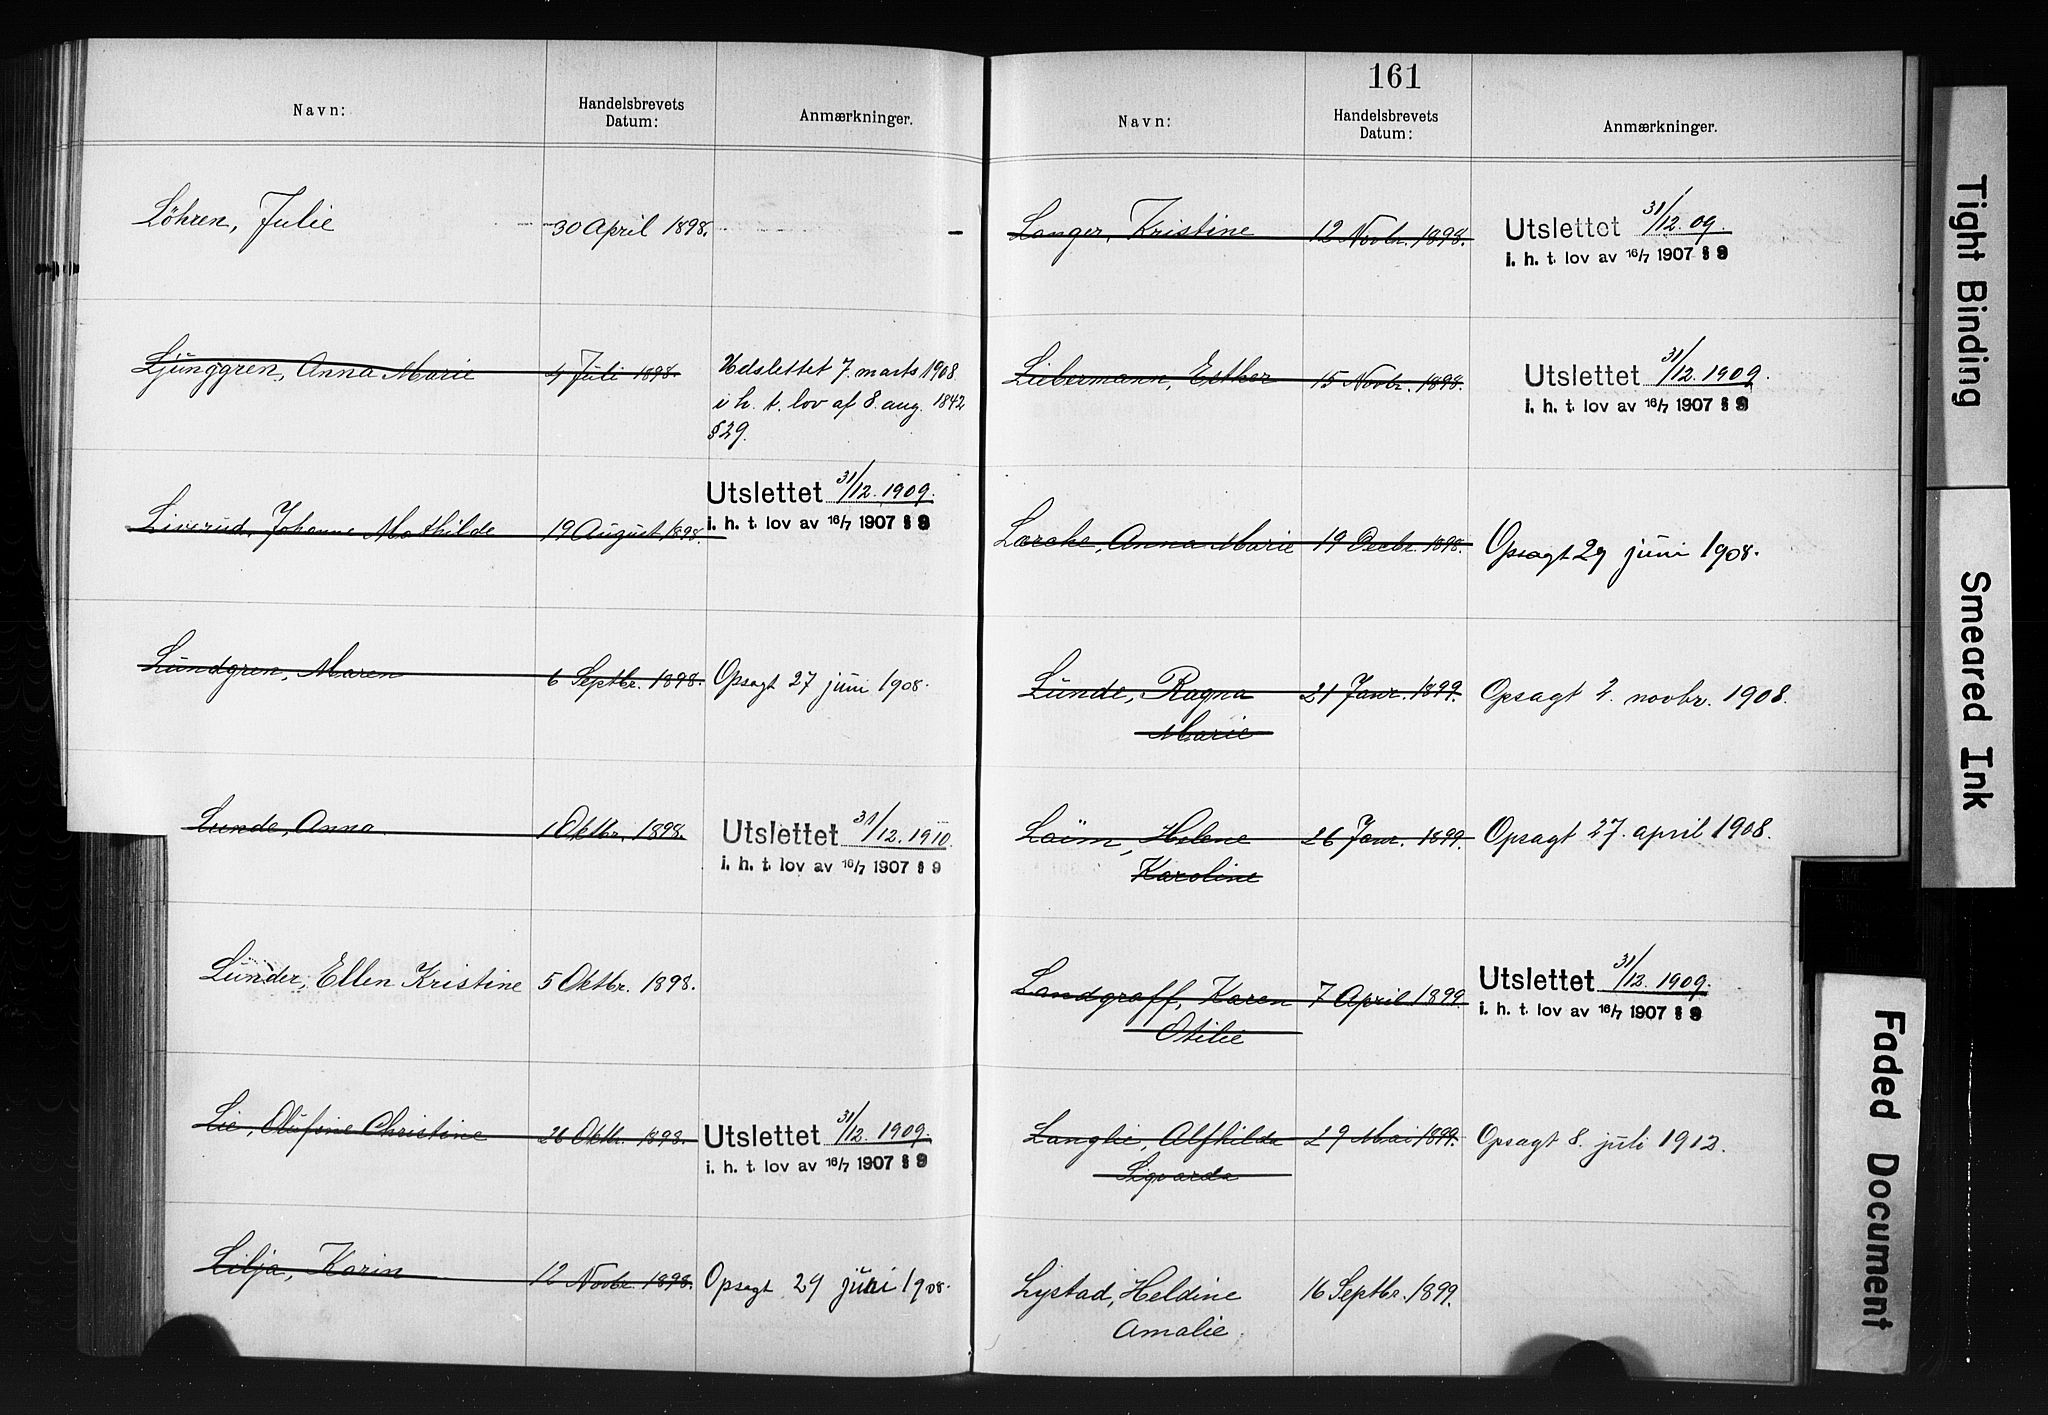 Navn:
Handelsbrevets
Datum:
Anmærkninger.
Löhren, Julie 30 April 1898.
Ljunggren, Anna Marie 4 Juli 1898. Udslettet 7. marts 1908
i h. t. lov af 8. aug. 1842
§ 29.
Liverud, Johanne Mathilde 19 August 1898. Utslettet 31/12. 1909.
i. h. t. lov av 16/7 1907 § 9
Lundgren, Maren 6 Septbr. 1898. Opsagt 27 juni 1908.
Lunde, Anna 1 Oktbr. 1898. Utslettet 31/12. 1910.
i. h. t. lov av 16/7 1907 § 9
Lunder, Ellen Kristine 5 Oktbr. 1898.
Lie, Olufine Christine 26 Oktbr. 1898. Utslettet 31/12. 1909.
i. h. t. lov av 16/7 1907 § 9
Lilja, Karin 12 Novbr. 1898. Opsagt 29 juni 1908.
161
Navn:
Handelsbrevets
Datum:
Anmærkninger.
Langer, Kristine 12 Novbr. 1898. Utslettet 31/12. 09.
i. h. t. lov av 16/7 1907 § 9
Liebermann, Esther 15 Novbr. 1898. Utslettet 31/12. 1909.
i. h. t. lov av 16/7 1907 § 9
Larche, Anna Marie 19 Decbr. 1898. Opsagt 29 juni 1908.
Lunde, Ragna 21 Janr. 1899. Opsagt 2. novbr. 1908.
Marie
Laum, Helene 26 Janr. 1899. Opsagt 27. april 1908.
Karoline
Landgraff, Karen 7 April 1899. Utslettet 31/12. 1909.
Otilie
i. h. t. lov av 16/7 1907 § 9
Langlie, Alfhilde 29 Mai 1899. Opsagt 8. juli 1912.
Sigvarda
Lystad, Heldine 16 Septbr. 1899.
Amalie
Tight Binding
Smeared Ink
Faded Document